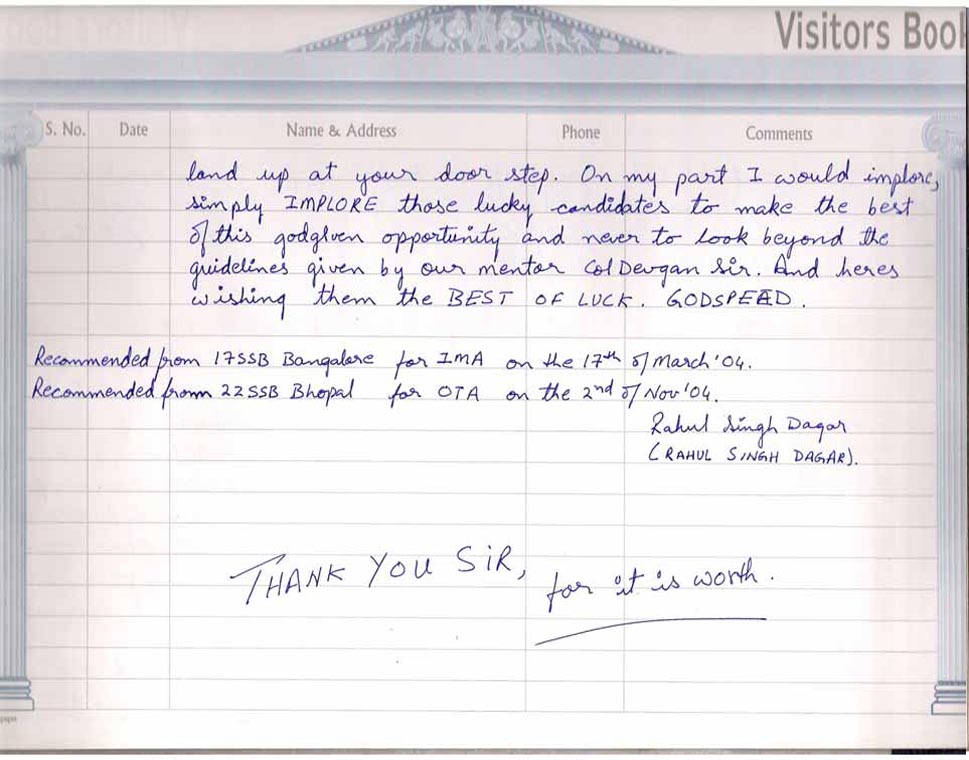 Visitors Book
S. No. Date Name & Address Phone Comments
land up at your door step. On my part I would implore,
simply IMPLORE those lucky candidates to make the best
of this godgiven opportunity and never to look beyond the
guidelines given by our mentor Col Devgan Sir. And heres
wishing them the BEST OF LUCK. GODSPEED.
Recommended from 17SSB Bangalore for IMA on the 17th of March'04.
Recommended from 22SSB Bhopal for OTA on the 2nd of Nov'04.
Rahul Singh Dagar
(RAHUL SINGH DAGAR).
THANK YOU SIR, for it is worth.